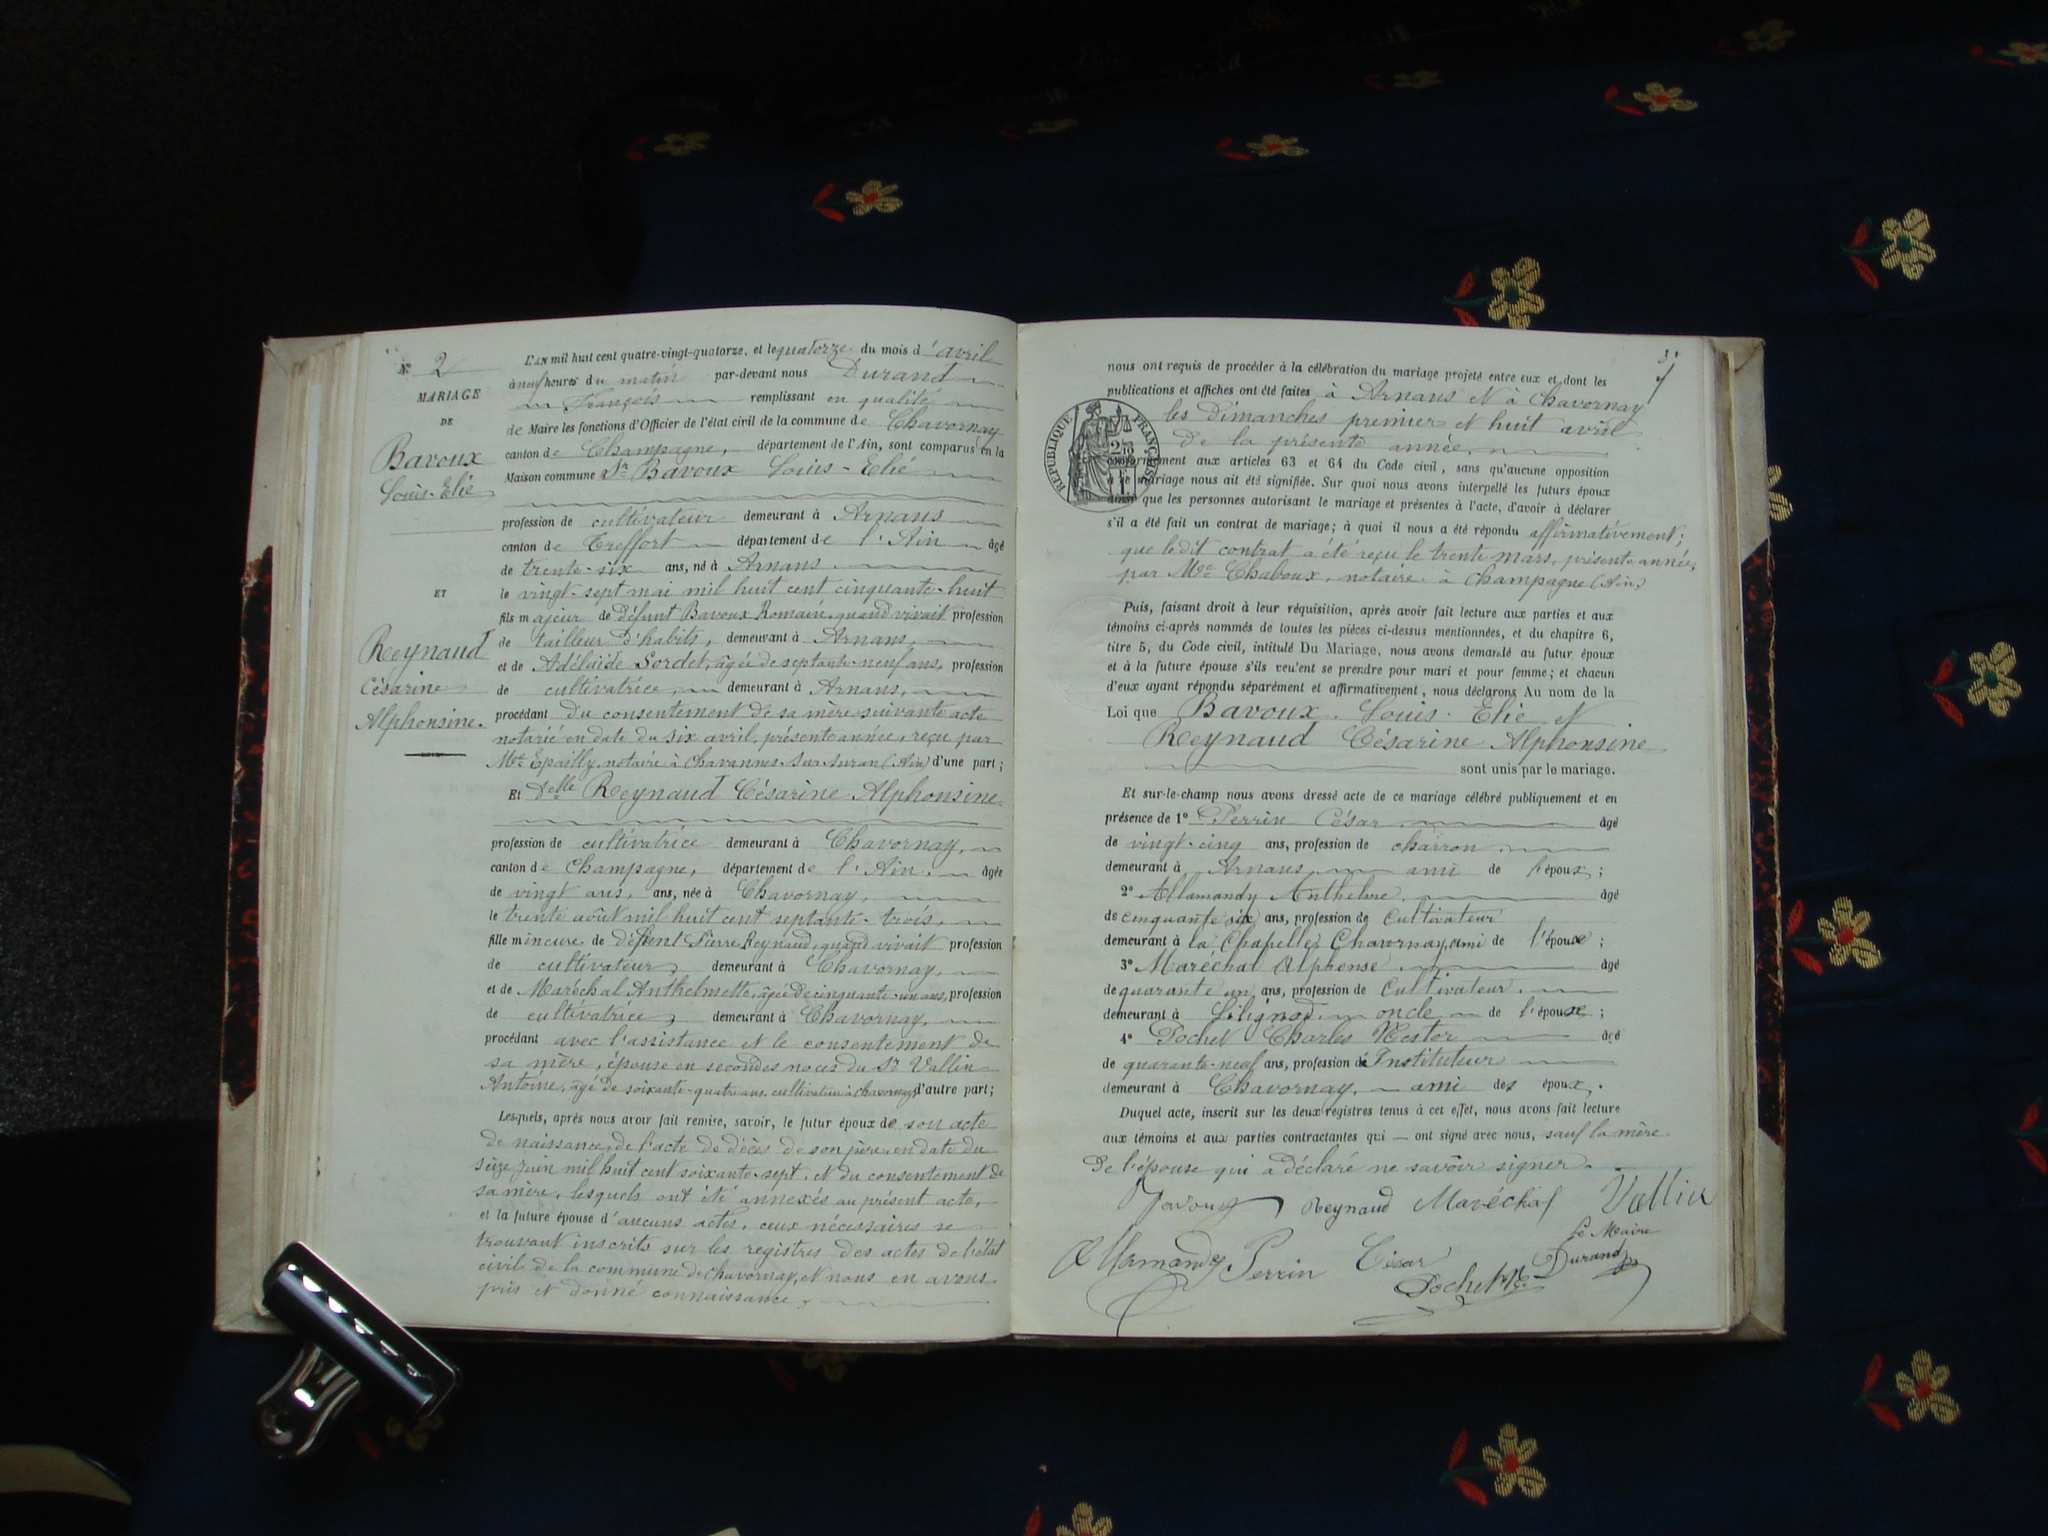 N° 2
MARIAGE
DE
Bavoux
Louis-Elie
ET
Reynaud
Césarine
Alphonsine.
L'AN mil huit cent quatre-vingt-quatorze, et le quatorze du mois d'avril
à neuf heures du matin par-devant nous Durand
François remplissant en qualité
de Maire les fonctions d'Officier de l'état civil de la commune de Chavornay
canton de Champagne, département de l'Ain, sont comparus en la
Maison commune Sr Bavoux Louis-Elie
profession de cultivateur demeurant à Arnans
canton de Treffort département de l'Ain âgé
de trente-six ans, né à Arnans
le vingt-sept mai mil huit cent cinquante-huit
fils majeur de défunt Bavoux Romain, quand vivait profession
de tailleur d'habits, demeurant à Arnans,
et de Adélaïde Serdet, âgée de septante-neuf ans, profession
de cultivatrice, demeurant à Arnans,
procédant du consentement de sa mère suivante acte
notarié en date du six avril, présente année, reçu par
Mtre Epailly, notaire à Chavannes-sur-Suran (Ain) d'une part;
Et Delle Reynaud Césarine Alphonsine
profession de cultivatrice demeurant à Chavornay,
canton de Champagne, département de l'Ain, âgée
de vingt ans, ans, née à Chavornay,
le trente août mil huit cent septante-trois,
fille mineure de défunt Pierre Reynaud, quand vivait profession
de cultivateur, demeurant à Chavornay,
et de Maréchal Anthelmette, âgée de cinquante-un ans, profession
de cultivatrice, demeurant à Chavornay,
procédant avec l'assistance et le consentement de
sa mère, épouse en secondes noces du Sr Vallin
Antoine, âgé de soixante-quatre ans, cultivateur à Chavornay d'autre part;
Lesquels, après nous avoir fait remise, savoir, le futur époux de son acte
de naissance, de l'acte de décès de son père en date du
seize juin mil huit cent soixante-sept, et du consentement de
sa mère, lesquels ont été annexés au présent acte,
et la future épouse d'aucuns actes, ceux nécessaires se
trouvant inscrits sur les registres des actes de l'état
civil de la commune de Chavornay, et nous en avons
pris et donné connaissance.
nous ont requis de procéder à la célébration du mariage projeté entre eux et dont les
publications et affiches ont été faites à Arnans et à Chavornay
les dimanches premier et huit avril
de la présente année,
RÉPUBLIQUE FRANÇAISE
conformément aux articles 63 et 64 du Code civil, sans qu'aucune opposition
à ce mariage nous ait été signifiée. Sur quoi nous avons interpellé les futurs époux
ainsi que les personnes autorisant le mariage et présentes à l'acte, d'avoir à déclarer
s'il a été fait un contrat de mariage; à quoi il nous a été répondu affirmativement;
que ledit contrat a été reçu le trente mars, présente année,
par Mtre Chaboux, notaire à Champagne (Ain)
Puis, faisant droit à leur réquisition, après avoir fait lecture aux parties et aux
témoins ci-après nommés de toutes les pièces ci-dessus mentionnées, et du chapitre 6,
titre 5, du Code civil, intitulé Du Mariage, nous avons demandé au futur époux
et à la future épouse s'ils veulent se prendre pour mari et pour femme; et chacun
d'eux ayant répondu séparément et affirmativement, nous déclarons Au nom de la
Loi que Bavoux Louis-Elie et
Reynaud Césarine Alphonsine
sont unis par le mariage.
Et sur-le-champ nous avons dressé acte de ce mariage célébré publiquement et en
présence de 1° Perrin César âgé
de vingt-cinq ans, profession de charron
demeurant à Arnans, ami de l'époux;
2° Allamandy Anthelme âgé
de cinquante six ans, profession de Cultivateur
demeurant à la Chapelle, Chavornay, ami de l'épouse;
3° Maréchal Alphonse âgé
de quarante un ans, profession de Cultivateur
demeurant à Lilignod, oncle de l'épouse;
4° Pochet Charles Nestor âgé
de quarante-neuf ans, profession d'Instituteur
demeurant à Chavornay, ami des époux.
Duquel acte, inscrit sur les deux registres tenus à cet effet, nous avons fait lecture
aux témoins et aux parties contractantes qui ont signé avec nous, sauf la mère
de l'épouse qui a déclaré ne savoir signer.
Bavoux Reynaud Maréchal Vallin
Le Maire
Allamandy Perrin César Durand
Pochet N.